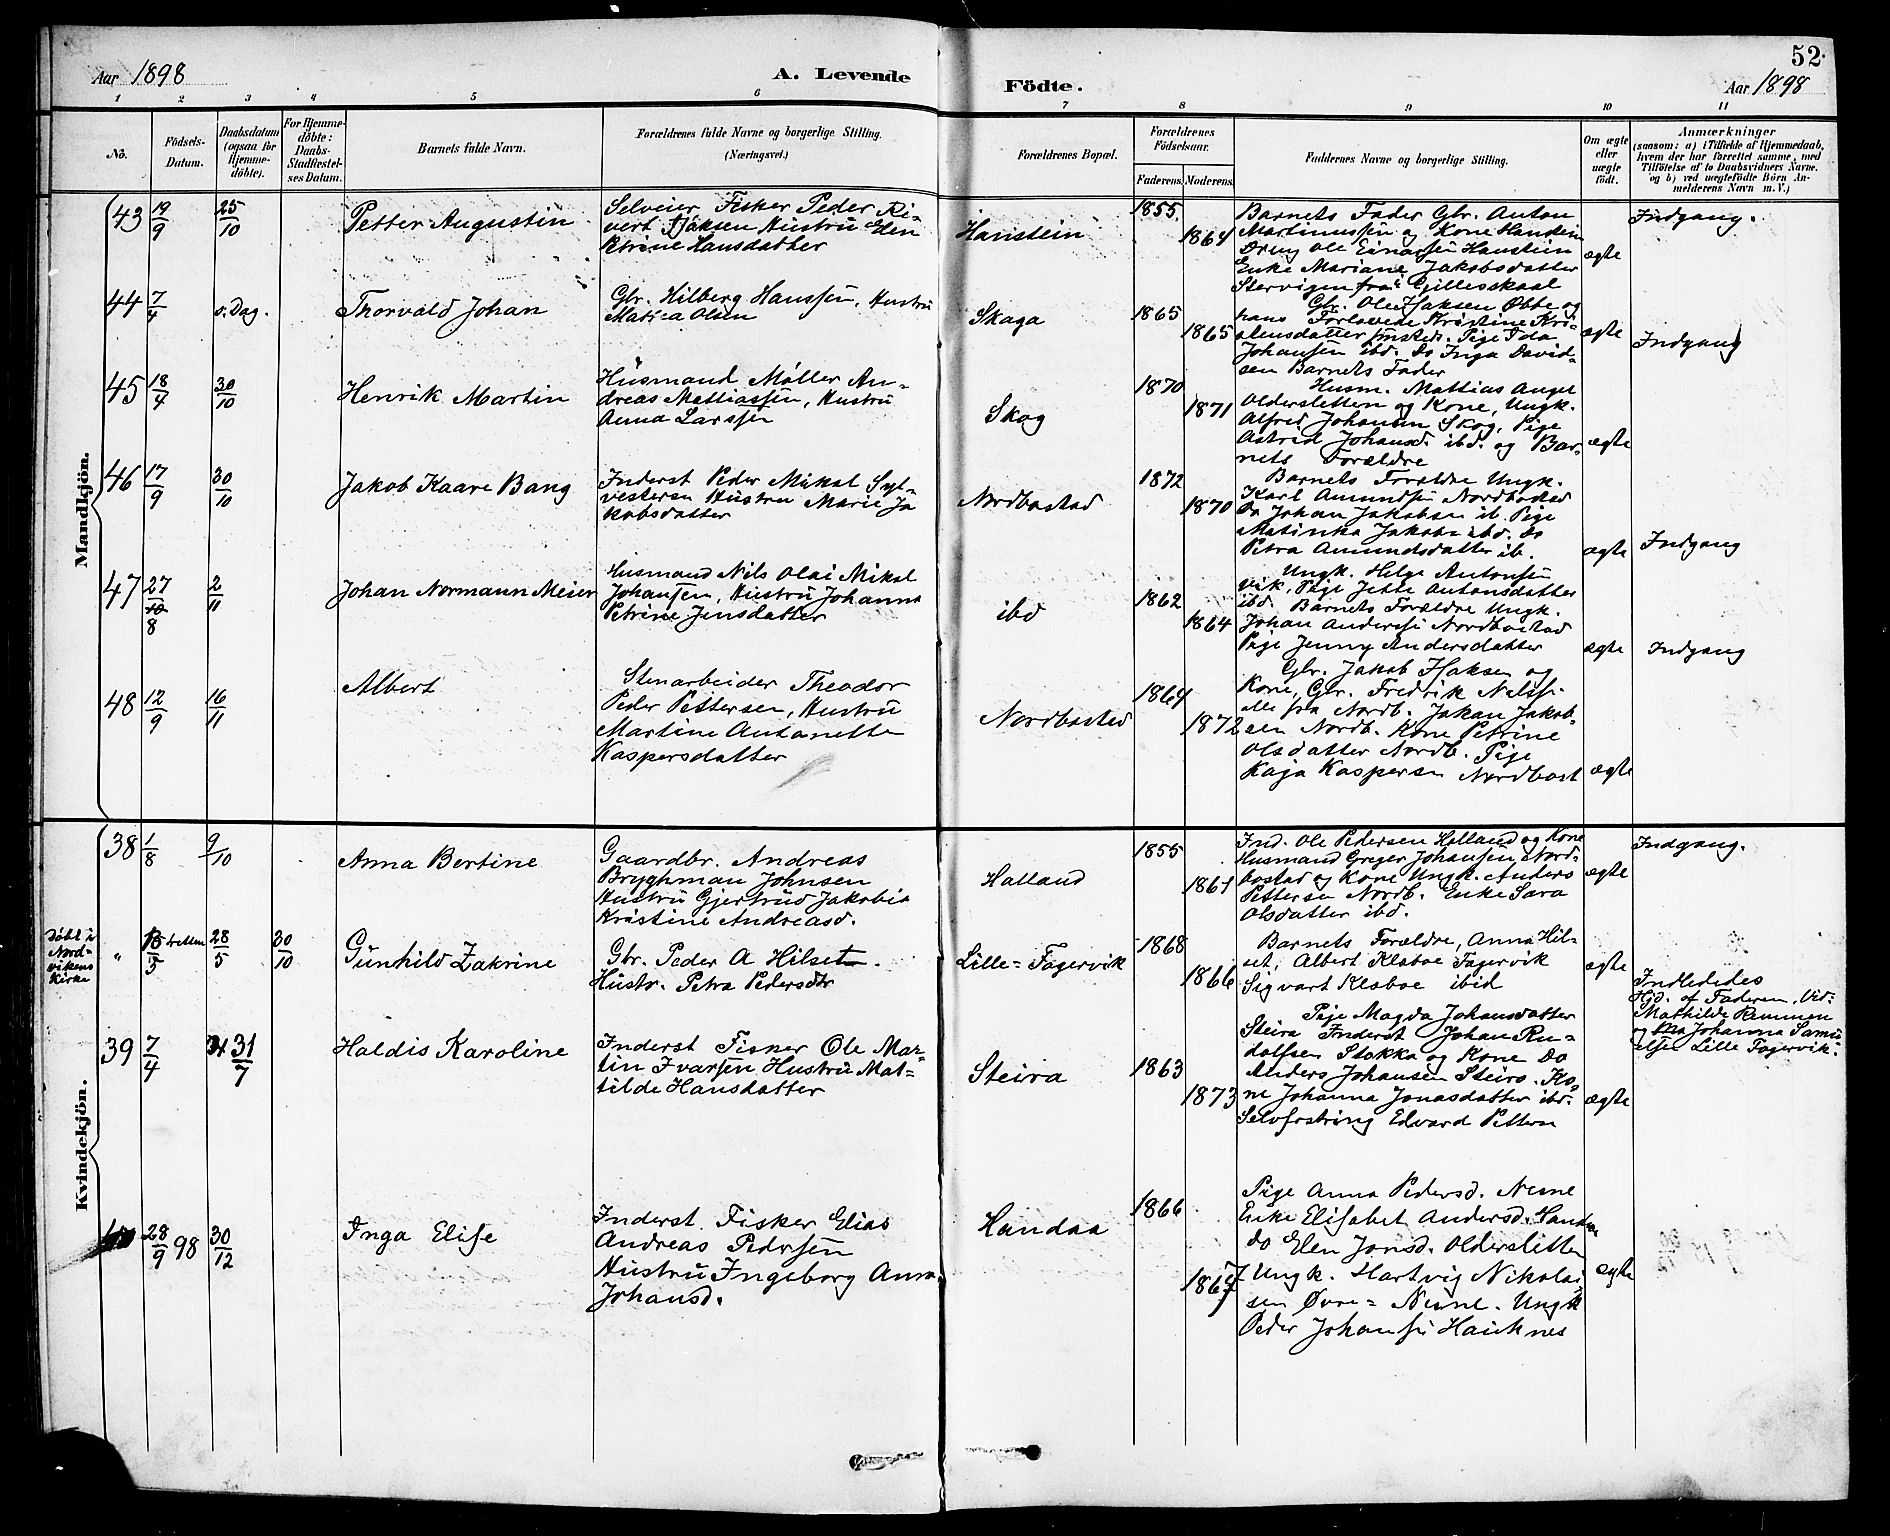 Aar 1898
A. Levende
Födte.
52.
Aar 1898
1 2 3 4 5 6 7 8 9 10 11
No.
Födsels-
Datum.
Daabsdatum
(ogsaa for
Hjemme-
döbte).
For Hjemme-
döbte:
Daabs-
Stadfæstel-
ses Datum.
Barnets fulde Navn.
Forældrenes fulde Navne og borgerlige Stilling.
(Næringsvei.)
Forældrenes Bopæl.
Forældrenes
Födselsaar.
Faderens. Moderens.
Faddernes Navne og borgerlige Stilling.
Om ægte
eller
uægte
födt.
Anmærkninger
(saasom: a) i Tilfælde af Hjemmedaab,
hvem der har forrettet samme, med
Tilföielse af to Daabsvidners Navne,
og b) ved uægtefödte Börn An-
melderens Navn m. V.)
Mandkjön.
43 19/9 25/10
Petter Augustin
Selveier Fisker Peder Ri-
vert Isaksen Hustru Elen
Petrine Hansdatter
Hanstein
1855.
1864
Barnets Fader Gbr. Anton
Martinussen og Kone Handein
Dreng Ole Einarsen Hanstein
Enke Mariane Jakobsdatter
Storvigen fra Gilleskaal
ægte
Indgang.
44 7/4 s. Dag.
Thorvald Johan
Gbr. Hilberg Hanssen, Hustru
Matea Olsen
Skaga
1865
1865
Gbr. Ole Isaksen Øbbe og
hans Forlovede Kristine Kri-
stensdatter Pige Ida
Johansen ibd. Do Inga David-
sen Barnets Fader
ægte
Indgang
45 18/4 30/10
Henrik Martin
Husmand Møller An-
dreas Mattiassen, Hustru
Anna Larssen
Skog
1870
1871
Husm. Mattias Angel
Oldersletten og Kone, Ungk.
Alfred Johansen Skog, Pige
Astrid Johansd. ibd. og Bar-
nets Forældre
ægte
46 17/9 30/10
Jakob Kaare Bang
Inderst Peder Mikal Syl-
vestersen Hustru Marie Ja
kobsdatter
Nordbostad
1872
1870
Barnets Forældre Ungk.
Karl Amundsen Nordbostad
Do Johan Jakobsen ib. Pige
Matinka Jakobs ibd. Do
Petra Amundsdatter ib.
ægte
Indgang
47 27/10 8 2/11
Johan Normann Meier
Husmand Nils Olai Mikal
Johansen, Hustru Johanna
Petrine Jensdatter
ibd
1862
1864
Ungk. Helge Antonsen
vik, Pige Jette Antonsdatter
ibd. Barnets Forældre Ungk.
Johan Andersen Nordbostad
Pige Jenny Andersdatter
ægte
Indgang
48 12/9 16/11
Albert
Stenarbeider Theodor
Peder Pettersen, Hustru
Martine Antonette
Kaspersdatter
Nordbostad
1864
1872
Gbr. Jakob Isaksen og
Kone, Gbr. Fredrik Nilss.
alle fra Nordb. Johan Jakob-
sen Nordb. Kone Petrine
Olsdatter Nordb. Pige
Kaja Kaspersen Nordbost
ægte
Kvindekjön.
38 1/8 9/10
Anna Bertine
Gaardbr. Andreas
Bryghman Johnsen
Hustru Gjertrud Jakobia
Kristine Andreasd.
Halland
1855
1861
Ind. Ole Pedersen Halland og Kone
Husmand Greger Johansen Nord-
bostad og Kone Ungk. Anders
Pettersen Nordb. Enke Sara
Olsdatter ibd.
ægte
Indgang.
Döbt i
Nord-
vikens
Kirke
" 13/5 tretten 28/5 30/10
Gunhild Zakrine
Gbr. Peder A Hilset.
Hustr. Petra Pedersdtr
Lille-Fagervik
1868
1866
Barnets Forældre, Anna Hil-
set, Albert Klæboe Fagervik
Sigvart Klæboe ibid
ægte
Indlededes
Hjd. af Faderen, Vid:
Mathilde Remmen
og Johanna Samu
elsen Lille Fagervik.
39 7/4 31/7
Haldis Karoline
Inderst Fisker Ole Mar-
tin Ivarsen Hustru Mat-
tilde Hansdatter
Steira
1863
1873
Pige Magda Johansdatter
Steira Inderst Johan Ru-
dolfsen Stokka og Kone Do
Anders Johansen Steiro. Ko-
ne Johanna Jonasdatter ibd.
Selvforstring Edvard Pettern
ægte
40 28/9 98 30/12
Inga Elise
Inderst Fisker Elias
Andreas Pedersen
Hustru Ingeborg Anna
Johansd.
Handaa
1866
1867
Pige Anna Pedersd. Nesne
Enke Elisabet Andersd. Handaa
Do Elen Jonsd. Oldersletten
Ungk. Hartvig Nikolai-
sen Øvre-Nesne. Ungk
Peder Johansen Hauknes
ægte